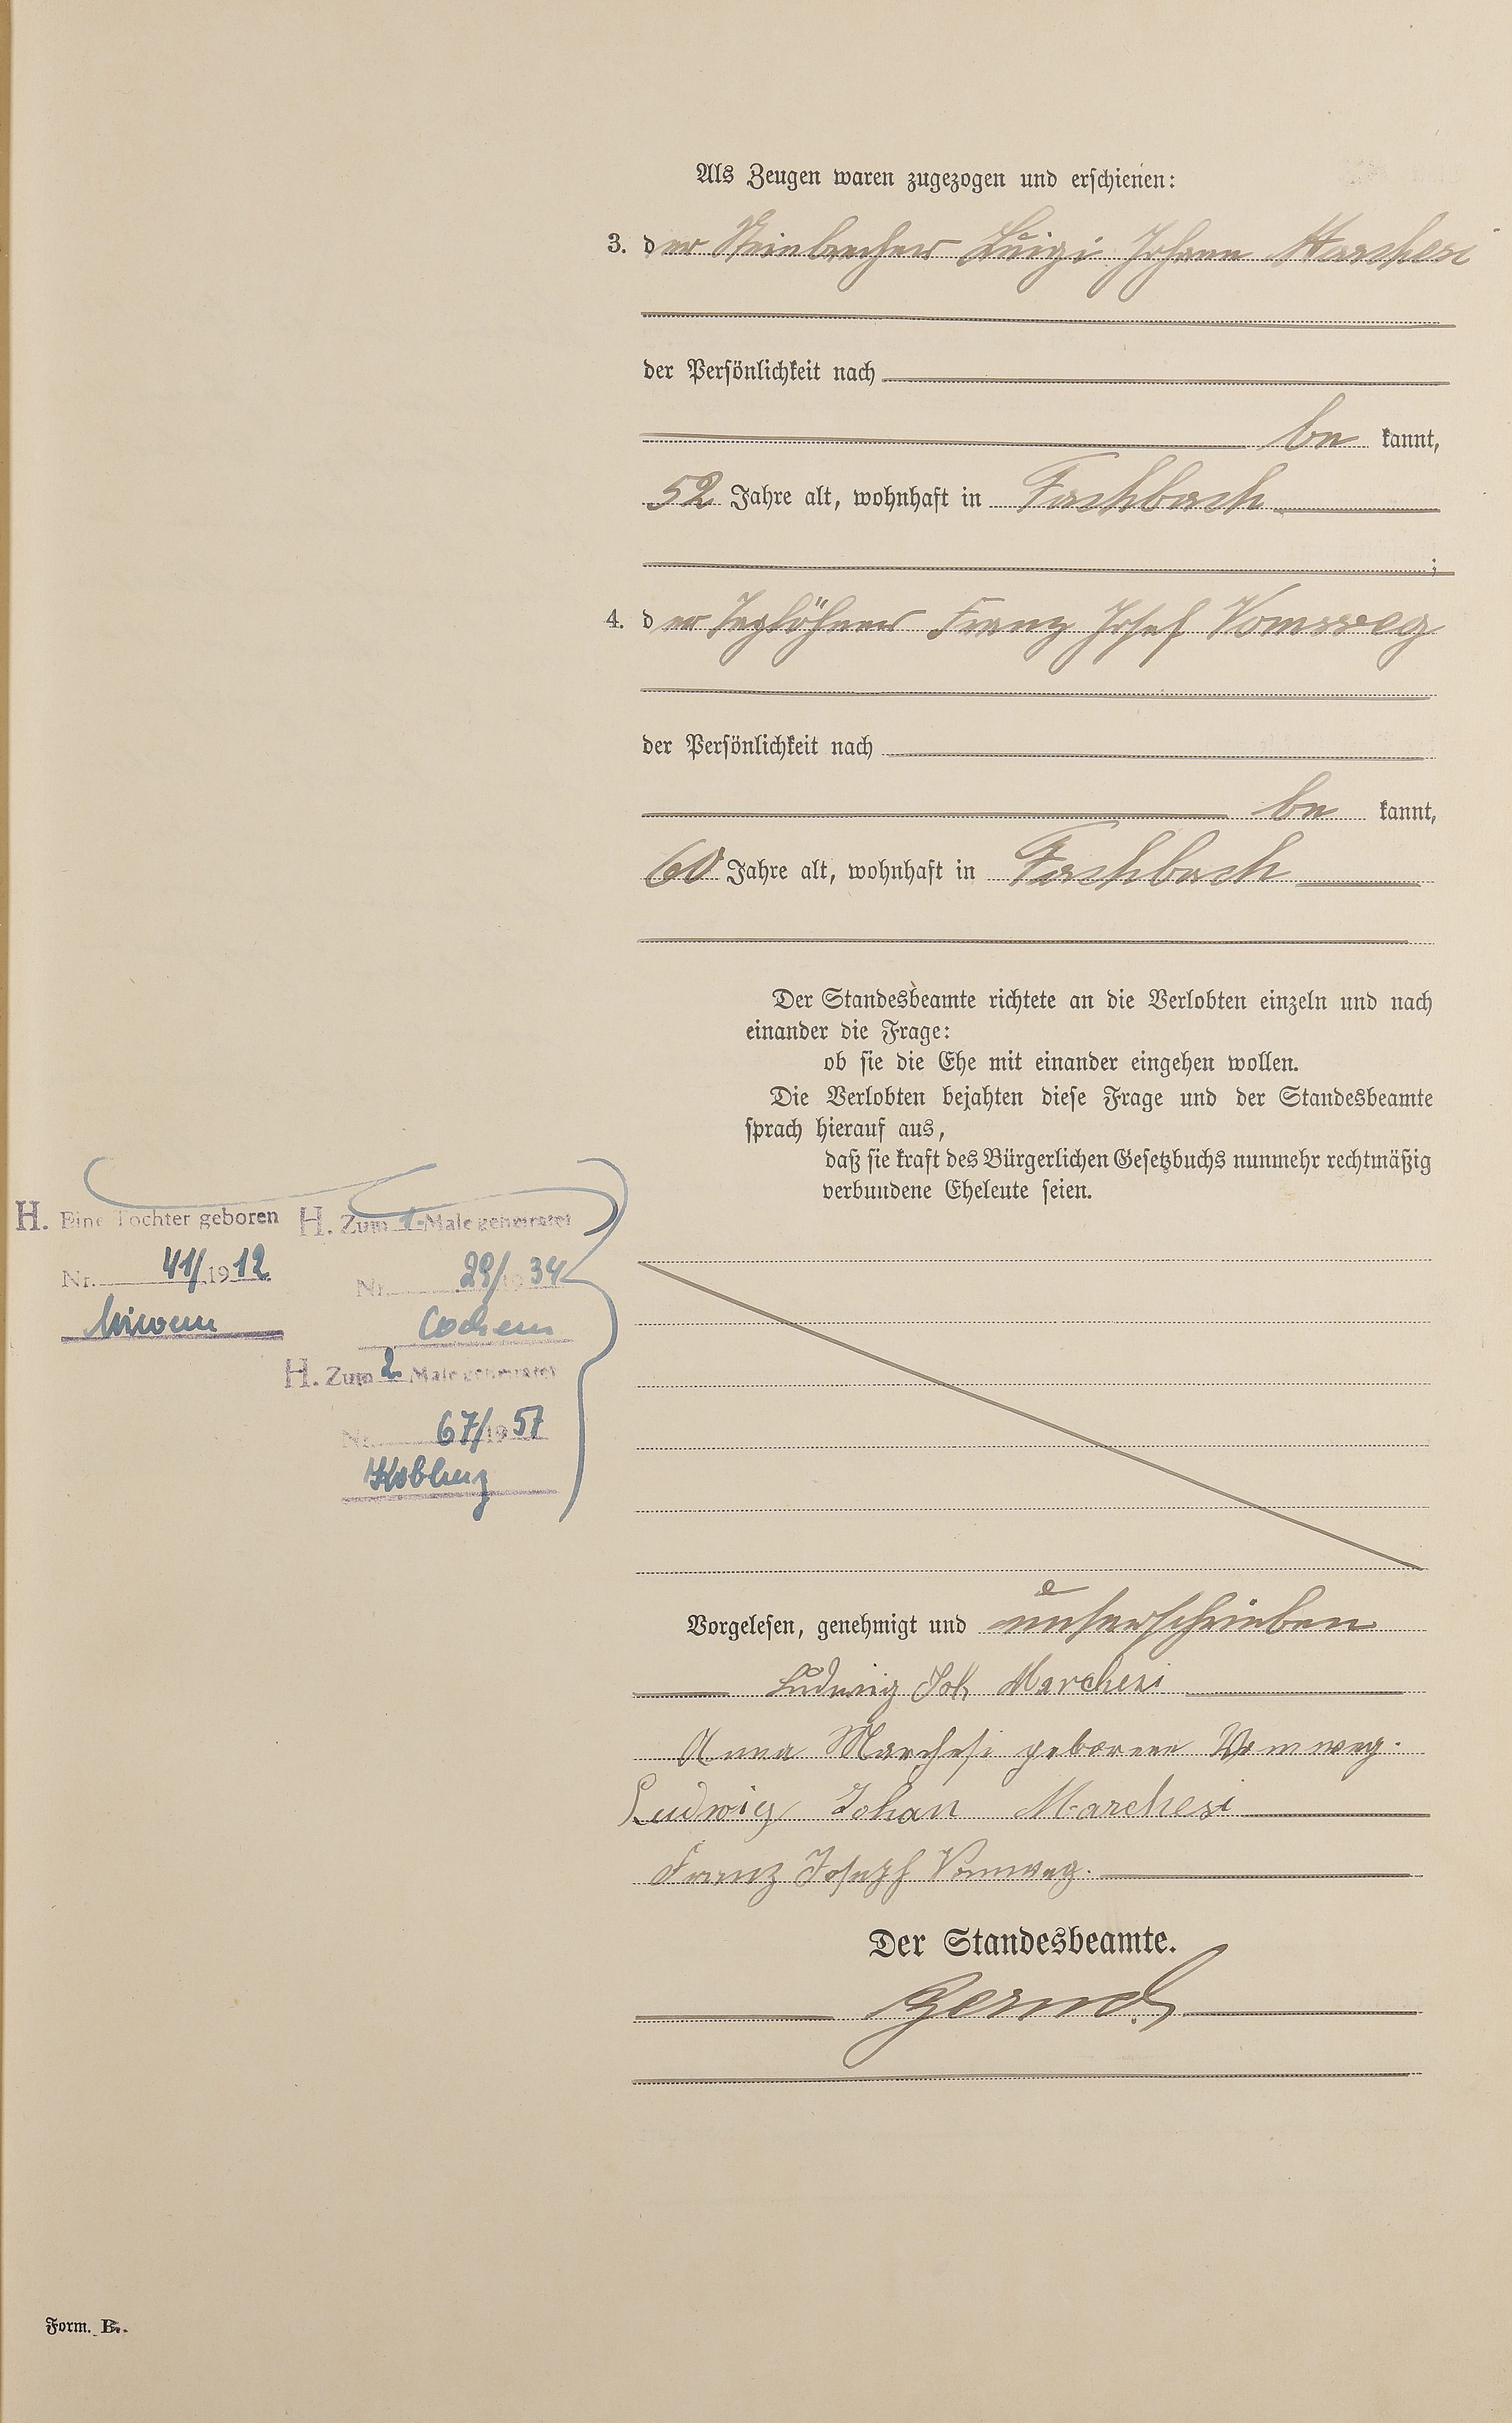 Als Zeugen waren zugezogen und erschienen:
3. der Steinbrecher Luigi Johann Marchesi
der Persönlichkeit nach
be kannt,
52 Jahre alt, wohnhaft in Fachbach
;
4. der Taglöhner Franz Josef Vomweg
der Persönlichkeit nach
be kannt,
60 Jahre alt, wohnhaft in Fachbach
Der Standesbeamte richtete an die Verlobten einzeln und nach
einander die Frage:
ob sie die Ehe mit einander eingehen wollen.
Die Verlobten bejahten diese Frage und der Standesbeamte
sprach hierauf aus,
daß sie kraft des Bürgerlichen Gesetzbuchs nunmehr rechtmäßig
verbundene Eheleute seien.
H. Eine Tochter geboren
Nr. 41/1912
Nievern
H. Zum 1. Male geheiratet
Nr. 29/1934
Cochem
H. Zum 2. Male geheiratet
Nr. 67/1957
Koblenz
Vorgelesen, genehmigt und unterschrieben
Ludwig Joh Marchesi
Anna Marchesi geborene Vomweg.
Ludwig Johan Marchesi
Franz Joseph Vomweg.
Der Standesbeamte.
Form. B.